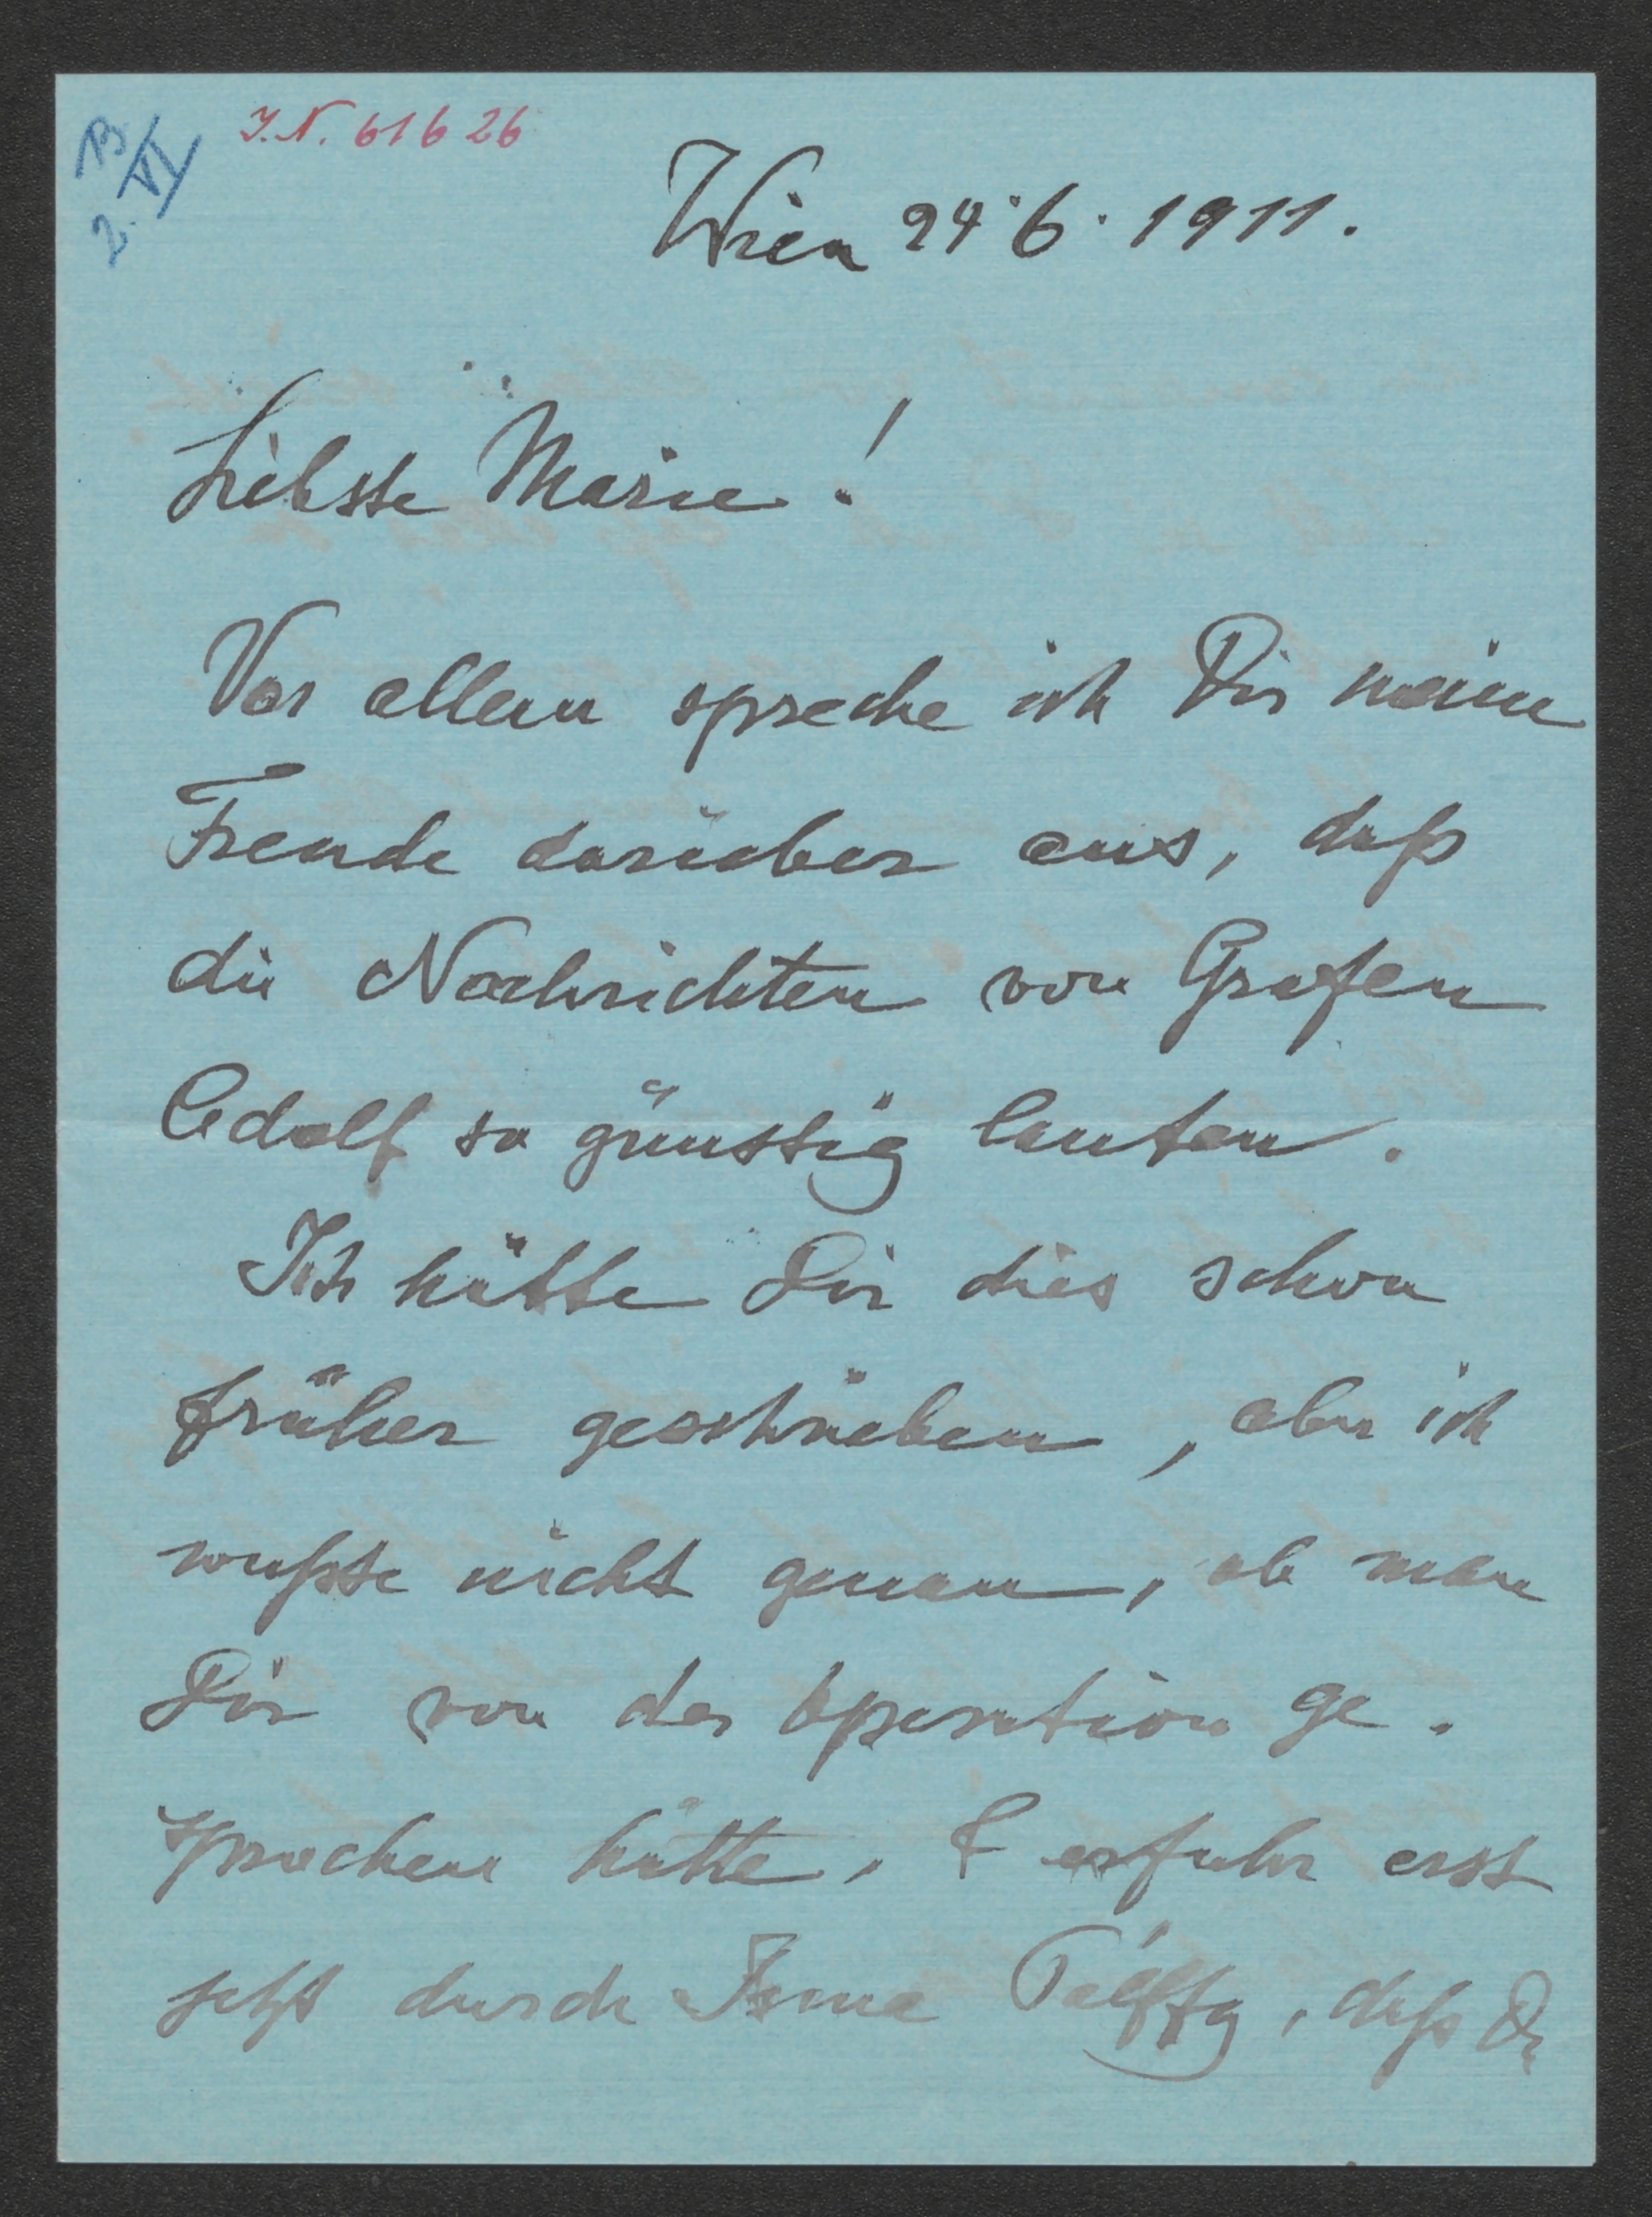 I.N. 61626
B
VI
2.
Wien 24.6.1911.
Liebste Marie!
Vor allem spreche ich Dir meine
Freude darüber aus, daß
die Nachrichten von Grafen
Adolf so günstig lauten.
Ich hätte Dir dies schon
früher geschrieben, aber ich
wußte nicht genau, ob man
Dir von der Operation ge-
sprochen hätte, & erfuhr erst
jetzt durch Irma Pálffy, daß Du